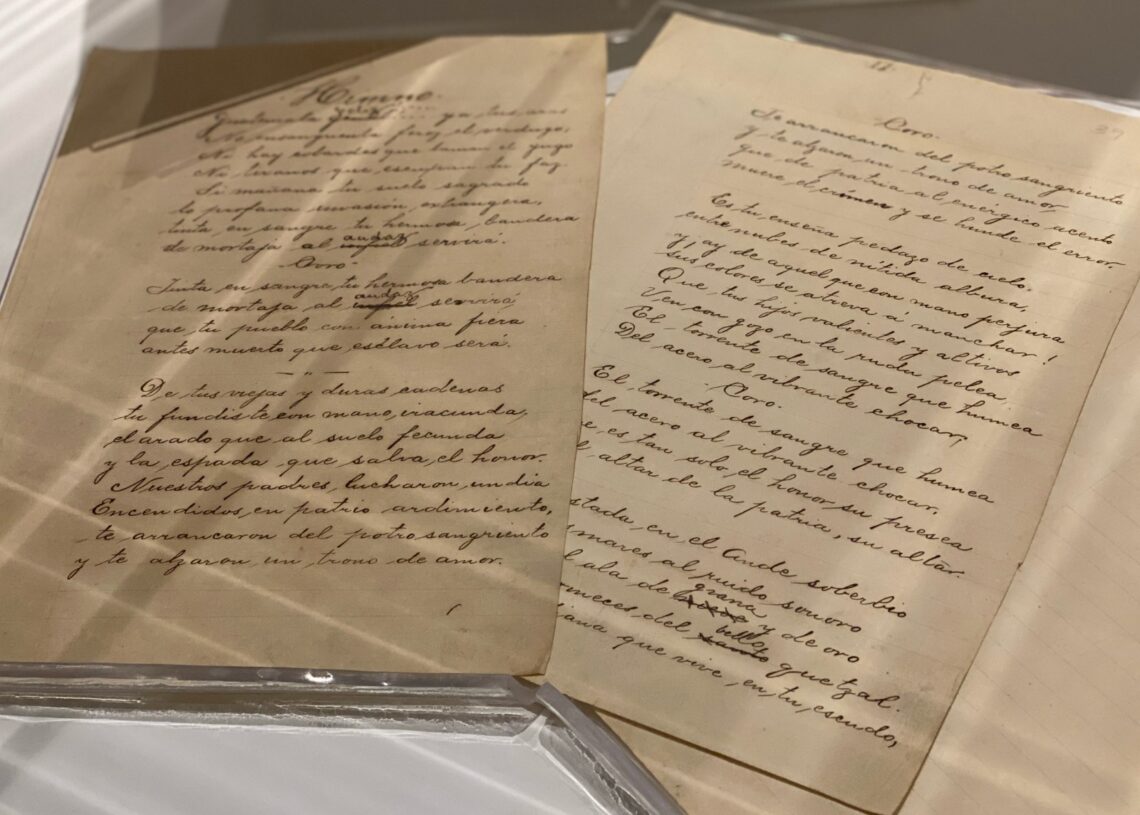 Himno.
Guatemala feliz ya tus aras
No ensangrienta feroz el verdugo;
Ni hay cobardes que laman el yugo
Ni tiranos que escupan tu faz.
Si mañana tu suelo sagrado
lo profana invasión extrangera,
tinta en sangre tu hermosa bandera
de mortaja al audaz servirá.
Coro
Tinta en sangre tu hermosa bandera
de mortaja al audaz servirá
que tu pueblo con ánima fiera
antes muerto que esclavo será.
De tus viejas y duras cadenas
tu fundiste con mano iracunda,
el arado que al suelo fecunda
y la espada que salva el honor.
Nuestros padres lucharon un dia
Encendidos en patrio ardimiento,
te arrancaron del potro sangriento
y te alzaron un trono de amor.
39
Coro.
Te arrancaron del potro sangriento
y te alzaron un trono de amor,
que de patria al enérgico acento
muere el crimen y se hunde el error.
Es tu enseña pedazo de cielo
entre nubes de nítida albura,
y ¡ay de aquel que con mano perjura
sus colores se atreva á manchar!
Que tus hijos valientes y altivos
Ven con gozo en la ruda pelea
El torrente de sangre que humea
Del acero al vibrante chocar,
Coro.
El torrente de sangre que humea
del acero al vibrante chocar,
es tan solo el honor su presea
altar de la patria, su altar.
stada en el Ande soberbio
mares al ruido sonoro
l ala de grana y de oro
meces del bello santo quetzal.
iana que vive en tu escudo,